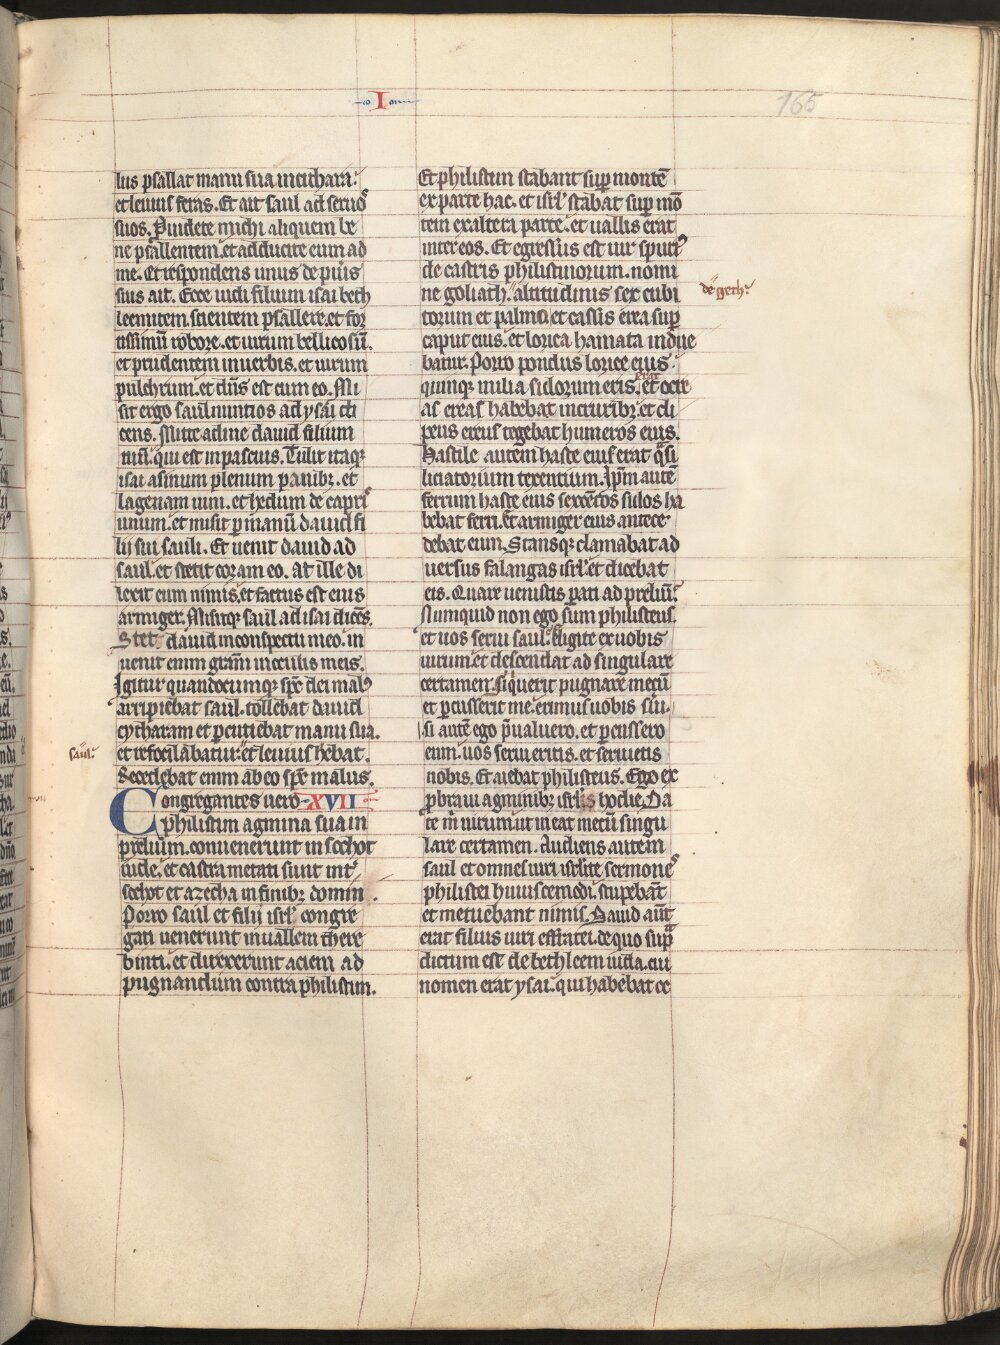 I
165
lus psallat manu sua in cithara.
et leuius feras. Et ait saul ad seruos
suos. Prouidete michi aliquem be
ne psallentem. et adducite eum ad
me. Et respondens unus de pueris
suis ait. Ecce uidi filium isai beth
leemitem. scientem psallere. et for
tissimū robore. et uirum bellicosū.
et prudentem in uerbis. et uirum
pulchrum. et dn̄s est cum eo. Mi
sit ergo saul nuntios ad ysai di
cens. Mitte ad me dauid filium
tuū. qui est in pascuis. Tulit itaqȝ
isai asinum plenum panibȝ. et
lagenam uini. et hedum de capris
unum. et misit p manū dauid fi
lii sui sauli. Et uenit dauid ad
saul. et stetit coram eo. At ille di
lexit eum nimis. et factus est eius
armiger. Misitqȝ saul ad isai dicēs.
Stet dauid in conspectu meo. in
uenit enim gr̄am in oculis meis.
Igitur quandocumqȝ spc̄ dei malus
arripiebat saul. tollebat dauid
cytharam et pcutiebat manu sua.
saul.
et refocilabatur. et leuius habebat.
Recedebat enim ab eo spc̄ malus.
Congregantes uero XVII
philistim agmina sua in
prelium. conuenerunt in sochot
iude. et castra metati sunt int̄
sochot et azecha in finibȝ domin.
Porro saul et filii isrl̄ congre
gati uenerunt in uallem there
binti. et direxerunt aciem ad
pugnandum contra philistim.
Et philistim stabant sup montē
ex parte hac. et isrl̄ stabat sup mō
tem ex altera parte. et uallis erat
inter eos. Et egressus est uir spuri9
de castris philistinorum. nomi
de geth.
ne goliath. altitudinis sex cubi
torum et palmi. et cassis erea sup
caput eius. et lorica hamata indue
batur. Porro pondus lorice eius
quinqȝ milia siclorum eris. erat et ocre
as ereas habebat in cruribȝ. et cli
peus ereus tegebat humeros eius.
Hastile autem haste eius erat q̄si
liciatorium texentium. Ip̄m autē
ferrum haste eius sexcētos siclos ha
bebat ferri. Et armiger eius antece
debat eum. Stansqȝ clamabat ad
uersus falangas isrl̄. et dicebat
eis. Quare uenistis pati ad preliū.
Numquid non ego sum philisteus.
et uos serui saul. Eligite ex uobis
uirum. et descendat ad singulare
certamen. Si quierit pugnare mecū
et pcusserit me. erimus uobis sui.
si autē ego p̄ualuero. et pcussero
eum. uos serui eritis. et seruietis
nobis. Et aiebat philisteus. Ego ex
pbraui agminibȝ isrl̄is hodie. Da
te m̄ uirum. ut ineat mecū singu
lare certamen. Audiens autem
saul et omnes uiri isrl̄ite sermones
philistei huiuscemodi. stupebāt
et metuebant nimis. Dauid aūt
erat filius uiri effratei. de quo sup̄
dictum est de bethleem iuda. cui
nomen erat ysai. qui habebat oc